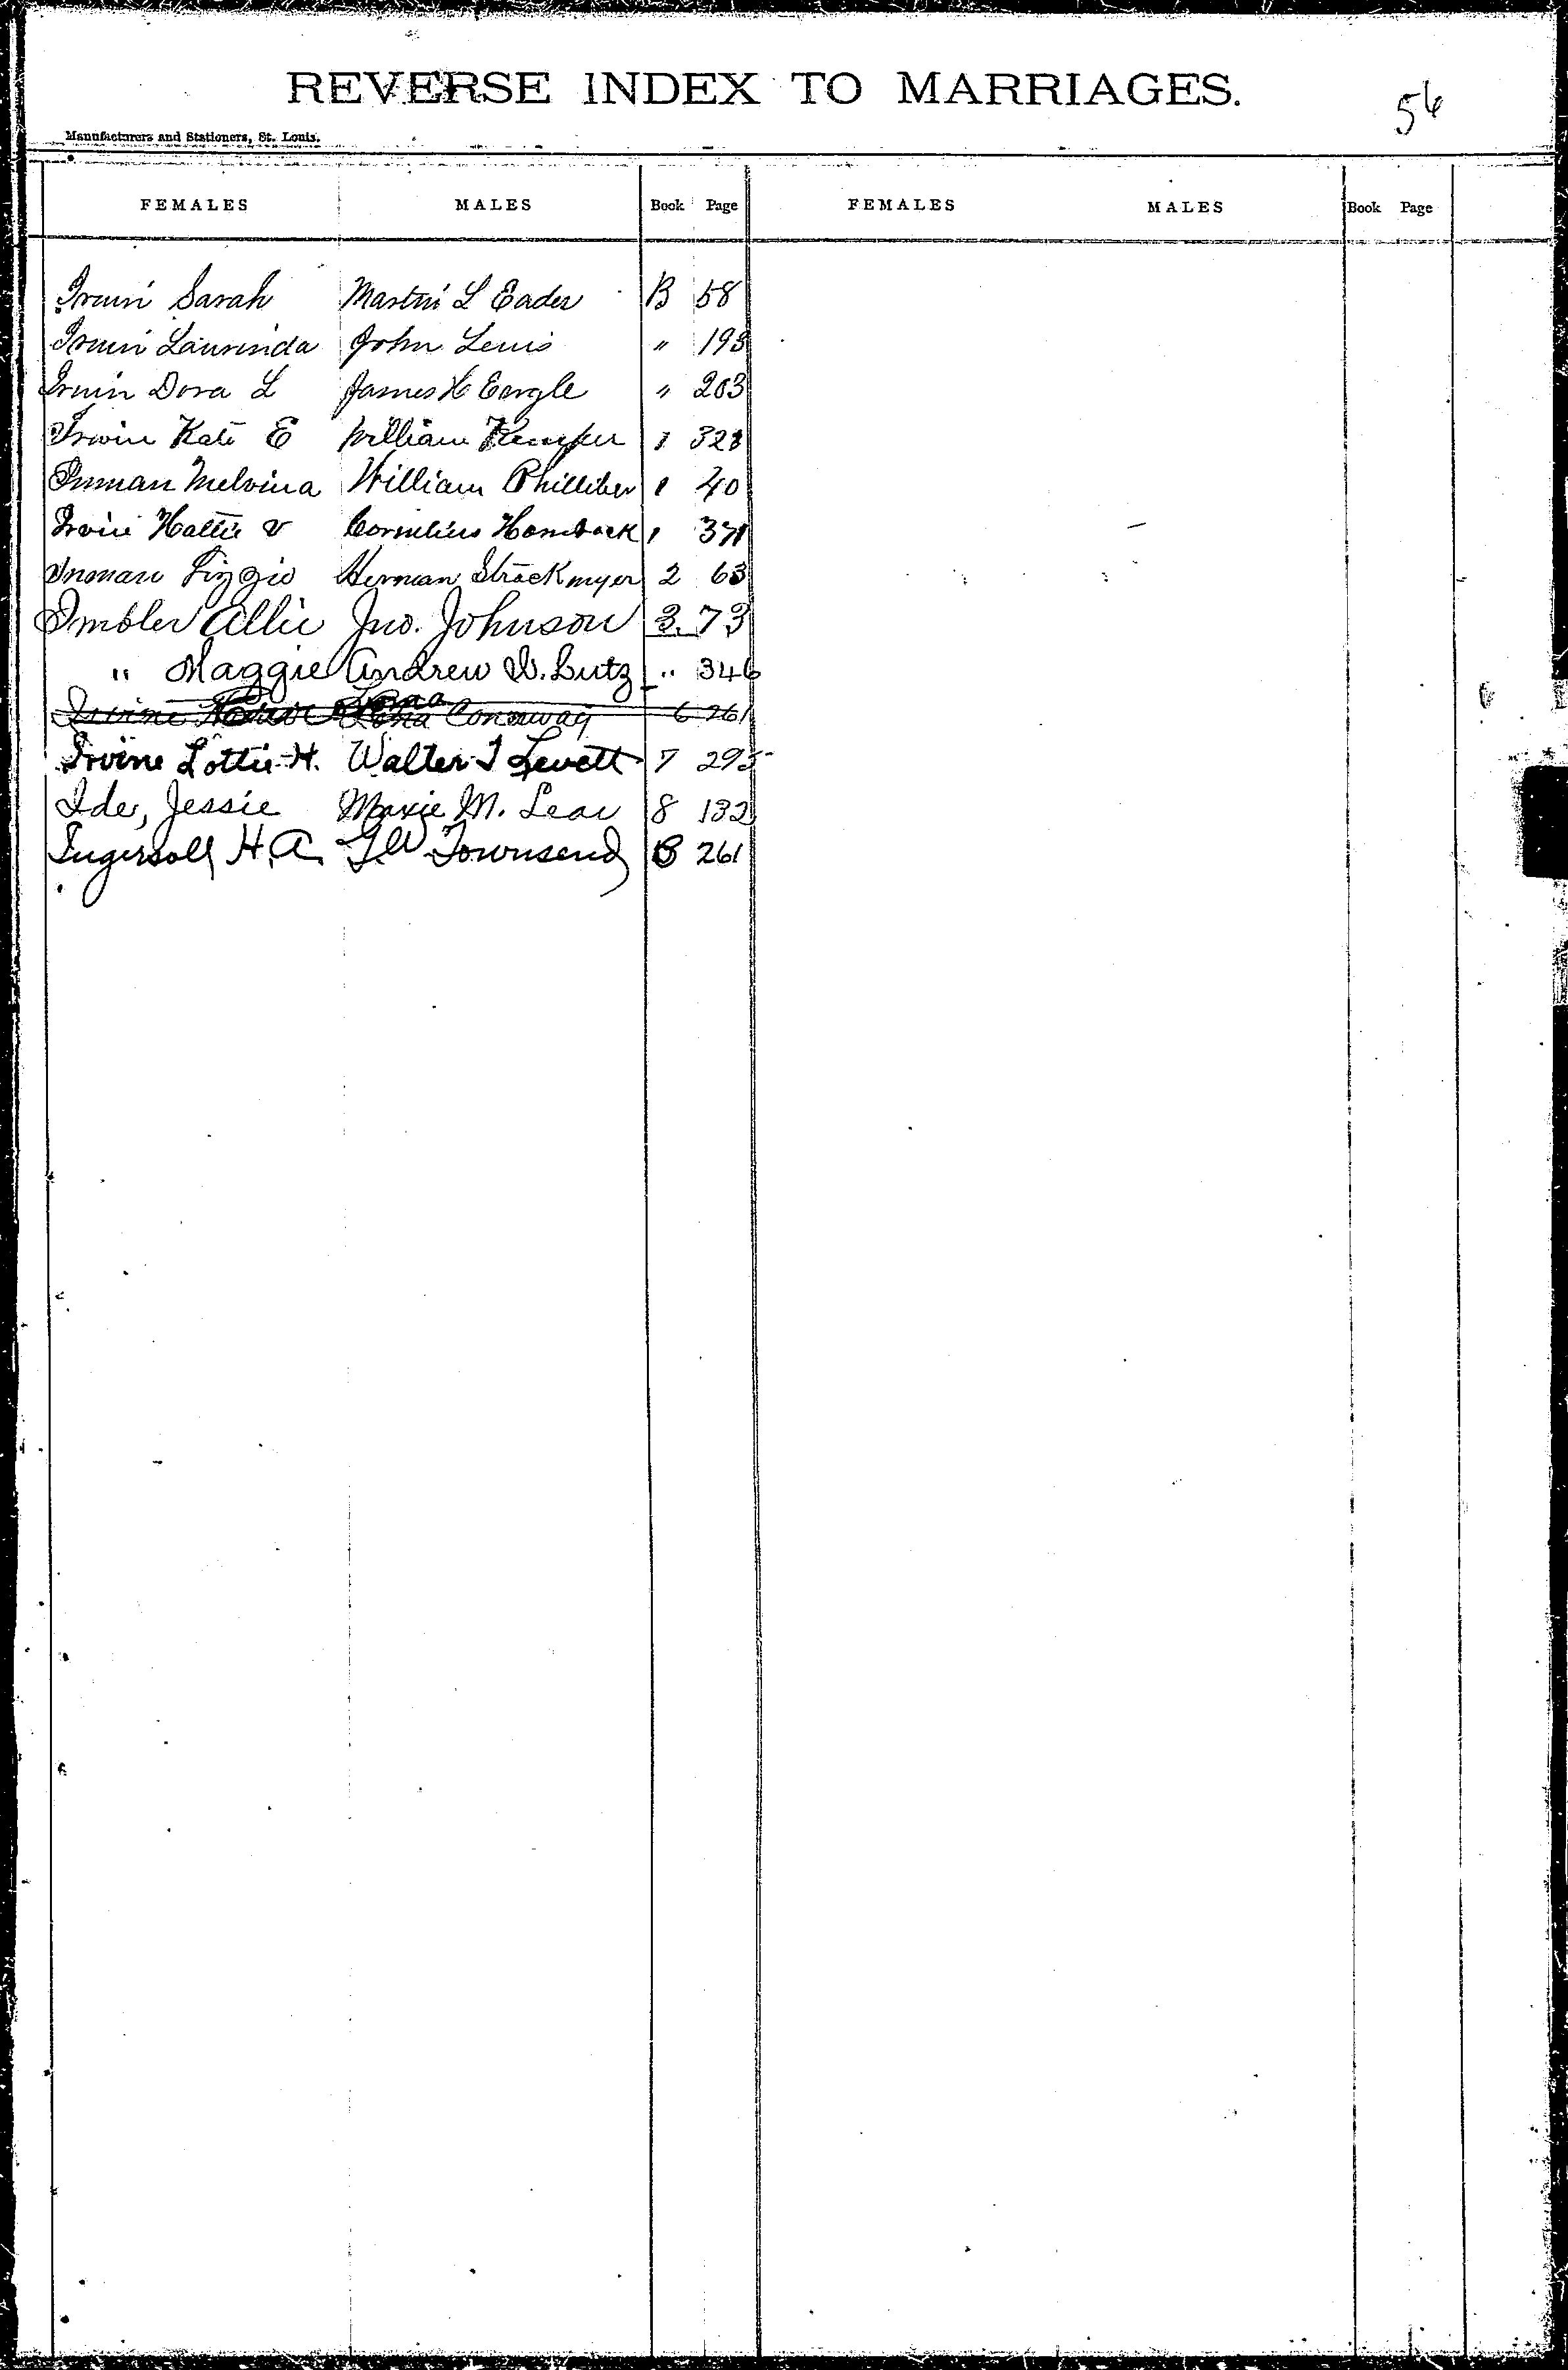 REVERSE INDEX TO MARRIAGES.
56
Manufacturers and Stationers, St. Louis.
FEMALES MALES Book Page FEMALES MALES Book Page
Irwin Sarah Martin L Eader B 58
Irwin Laurinda John Lewis " 193
Irwin Dora L James H Eargle " 203
Irwin Kate E William Kemper 1 328
Inman Melvina William Philliber 1 40
Irvin Hattie V Cornelius Hornback 1 371
Inman Lizzie Herman Strackmyer 2 63
Imbler Allie Jno. Johnson 3. 73
" Maggie Andrew D. Lutz " 346
Irvine Lona Conaway 6 261
Irvine Lottie H. Walter T Levett 7 295
Ide, Jessie Maxie M. Lear 8 132
Ingersoll H.A. G W Townsend B 261